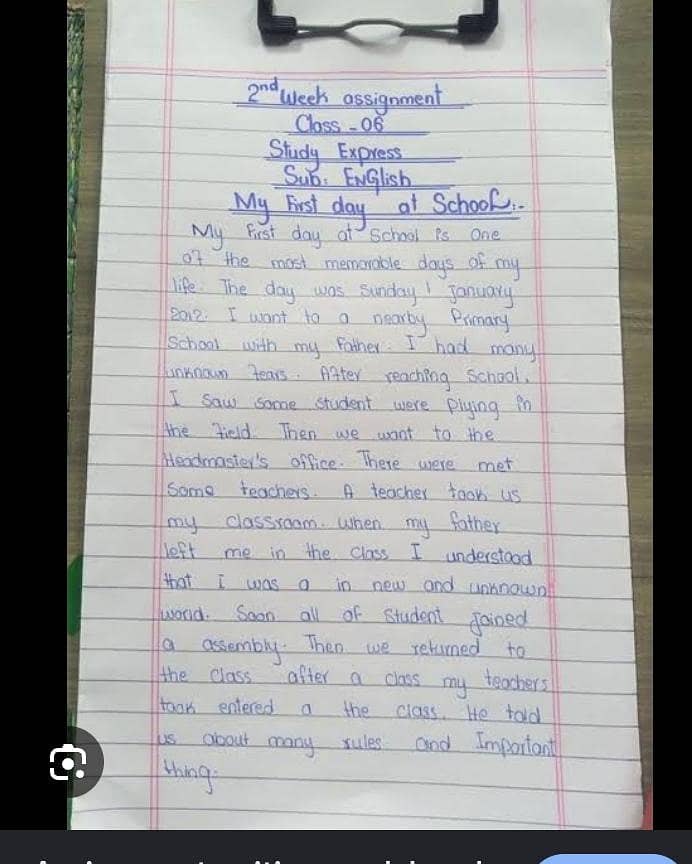 2nd Week assignment
Class - 06
Study Express
Sub: ENGlish
My First day at School:-
My first day at School is One
of the most memorable days of my
life. The day was Sunday 1 January
2012. I want to a nearby Primary
School with my father. I had many
unknown fears. After reaching School.
I Saw Some student were Plying in
the field. Then we want to the
Headmaster's office. There were met
Some teachers. A teacher took us
my classroom. when my father
left me in the class I understood
that i was a in new and unknown
world. Soon all of Student joined
a assembly. Then we returned to
the class after a class my teachers
took entered a the class. He told
us about many rules and Important
thing.